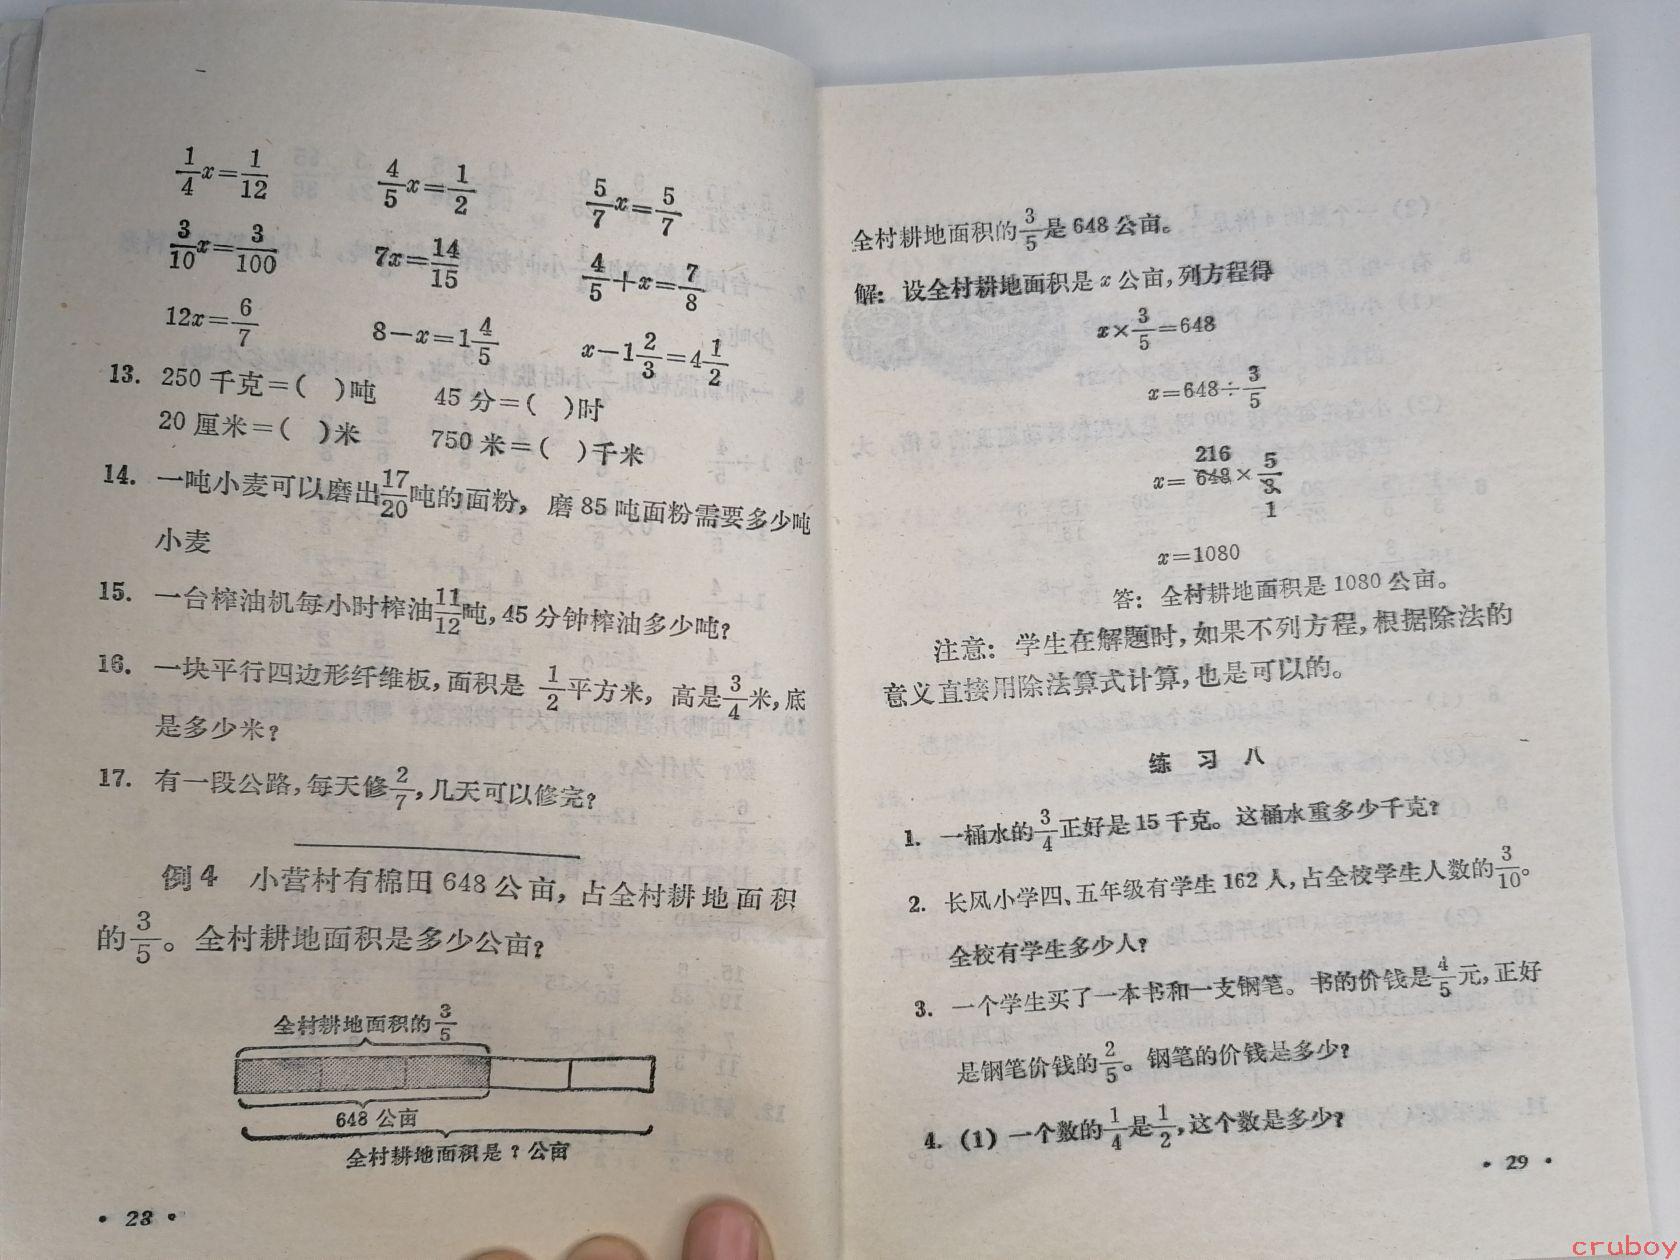 1/4 x=1/12 4/5 x=1/2 5/7 x=5/7
3/10 x=3/100 7x=14/15 4/5+x=7/8
12x=6/7 8-x=1 4/5 x-1 2/3=4 1/2
13. 250千克=( )吨 45分=( )时
20厘米=( )米 750米=( )千米
14. 一吨小麦可以磨出17/20吨的面粉，磨85吨面粉需要多少吨
小麦
15. 一台榨油机每小时榨油11/12吨，45分钟榨油多少吨？
16. 一块平行四边形纤维板，面积是1/2平方米，高是3/4米，底
是多少米？
17. 有一段公路，每天修2/7，几天可以修完？
例4 小营村有棉田648公亩，占全村耕地面积
的3/5。全村耕地面积是多少公亩？
全村耕地面积的3/5
648公亩
全村耕地面积是？公亩
• 28 •
全村耕地面积的3/5是648公亩。
解：设全村耕地面积是x公亩，列方程得
x×3/5=648
x=648÷3/5
216
x=648×5/3
1
x=1080
答：全村耕地面积是1080公亩。
注意：学生在解题时，如果不列方程，根据除法的
意义直接用除法算式计算，也是可以的。
练习八
1. 一桶水的3/4正好是15千克。这桶水重多少千克？
2. 长风小学四、五年级有学生162人，占全校学生人数的3/10。
全校有学生多少人？
3. 一个学生买了一本书和一支钢笔。书的价钱是4/5元，正好
是钢笔价钱的2/5。钢笔的价钱是多少？
4. (1) 一个数的1/4是1/2，这个数是多少？
• 29 •
cruboy